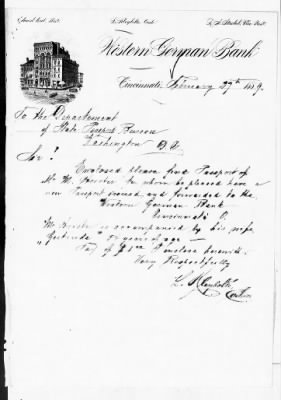 Western German Bank
Cincinnati, February 27th 1889.
To the Department
of State Passport Bureau
Washington D.C.
Sir!
Enclosed please find Passport of
Mr. M. to whom be pleased have a
new Passport issued and forwarded to the
Western German Bank
Cincinnati O.
Mr. is accompanied by his wife
"Gertrude" years of age —
of $1.00 I enclose herewith.
Very Respectfully
L.
Cashier